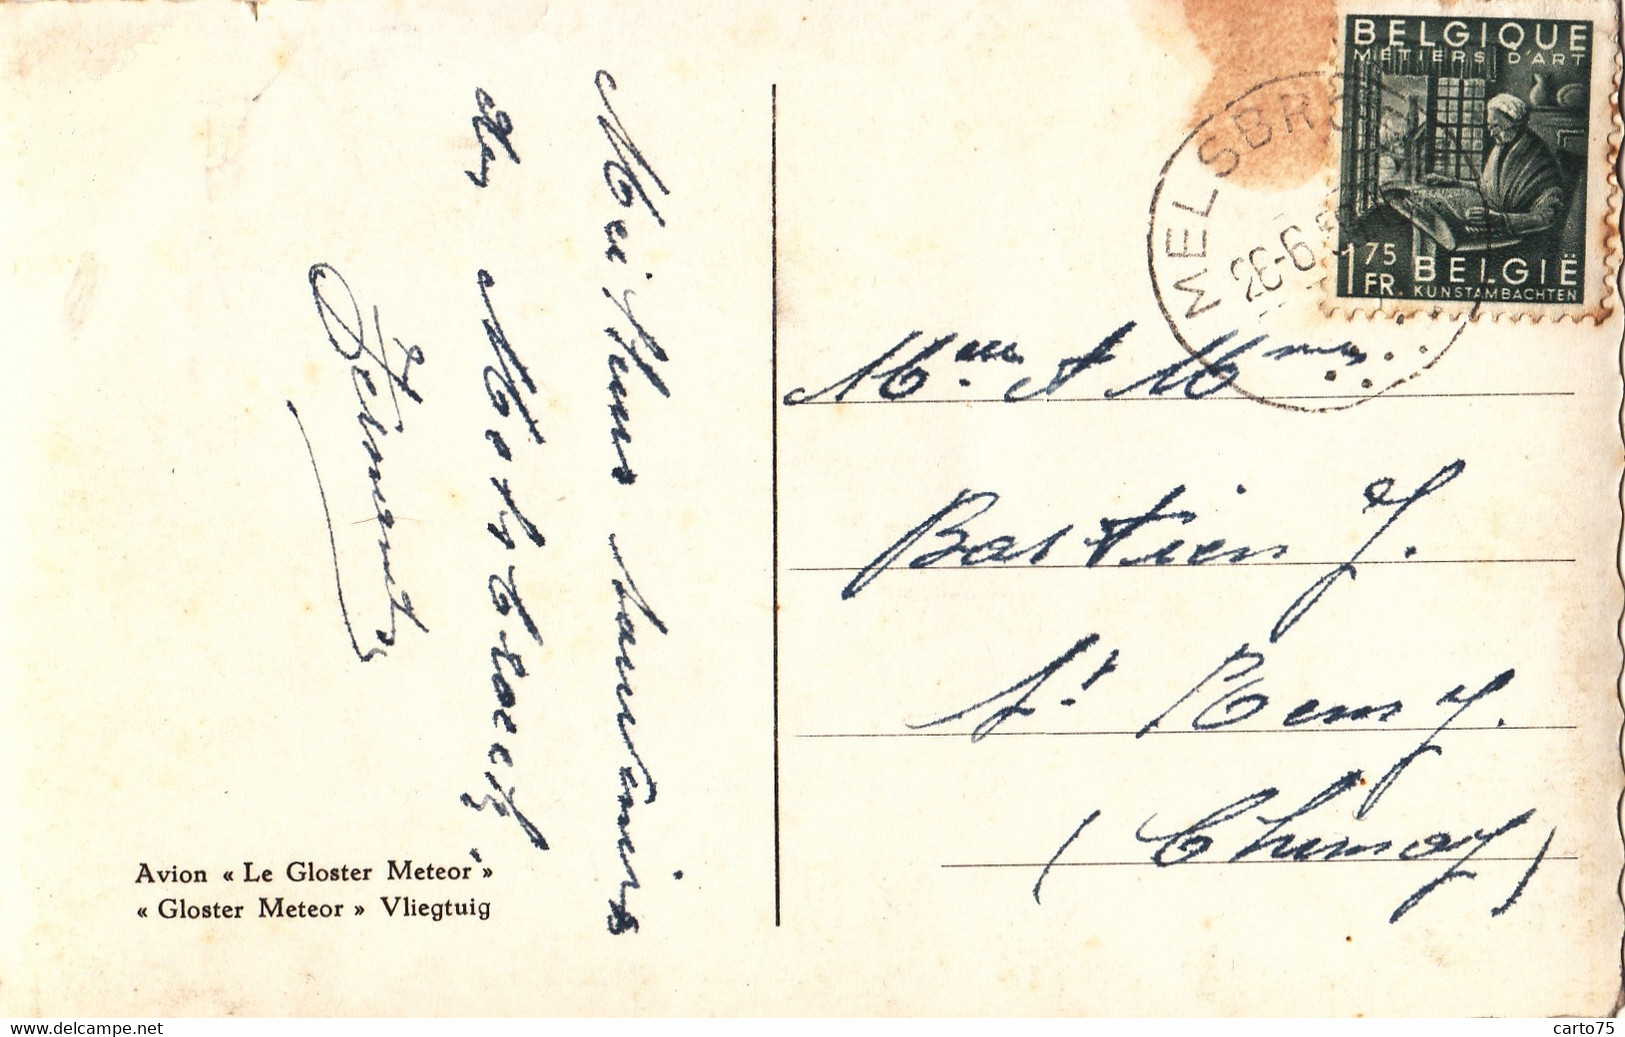 Meilleurs souvenirs
de Melsbroeck.
Fernand
Avion « Le Gloster Meteor »
« Gloster Meteor » Vliegtuig
BELGIQUE
METIERS D'ART
1 75 FR.
BELGIË
KUNSTAMBACHTEN
MELSBRO
26-6
Bastien J.
St Remy.
(Chimay)
www.delcampe.net
carto75